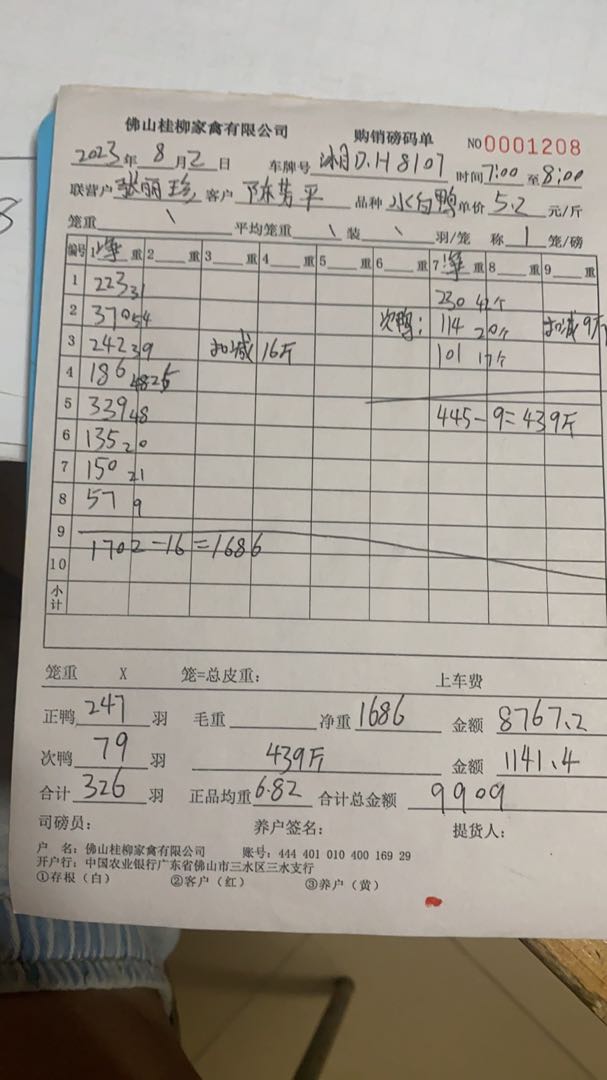 佛山桂柳家禽有限公司 购销磅码单 NO 0001208
2023年 8月2日 车牌号 湘D.H8107 时间 7:00 至 8:00
联营户 张丽珍 客户 陈芳平 品种 水白鸭 单价 5.2 元/斤
笼重 \ 平均笼重 \ 装 \ 羽/笼 称 1 笼/磅
编号 1 净 重 2 重 3 重 4 重 5 重 6 重 7 净 重 8 重 9 重
1 223 31 230 42个
2 370 54 次鸭: 114 20个 扣减9斤
3 242 39 扣减16斤 101 17个
4 186 25
5 339 48 445-9=439斤
6 135 20
7 150 21
8 57 9
9
1702-16=1686
10
小计
笼重 X 笼=总皮重: 上车费
正鸭 247 羽 毛重 净重 1686 金额 8767.2
次鸭 79 羽 439斤 金额 1141.4
合计 326 羽 正品均重 6.82 合计总金额 9909
司磅员: 养户签名: 提货人:
户 名: 佛山桂柳家禽有限公司 账号: 444 401 010 400 169 29
开户行: 中国农业银行广东省佛山市三水区三水支行
①存根(白) ②客户(红) ③养户(黄)